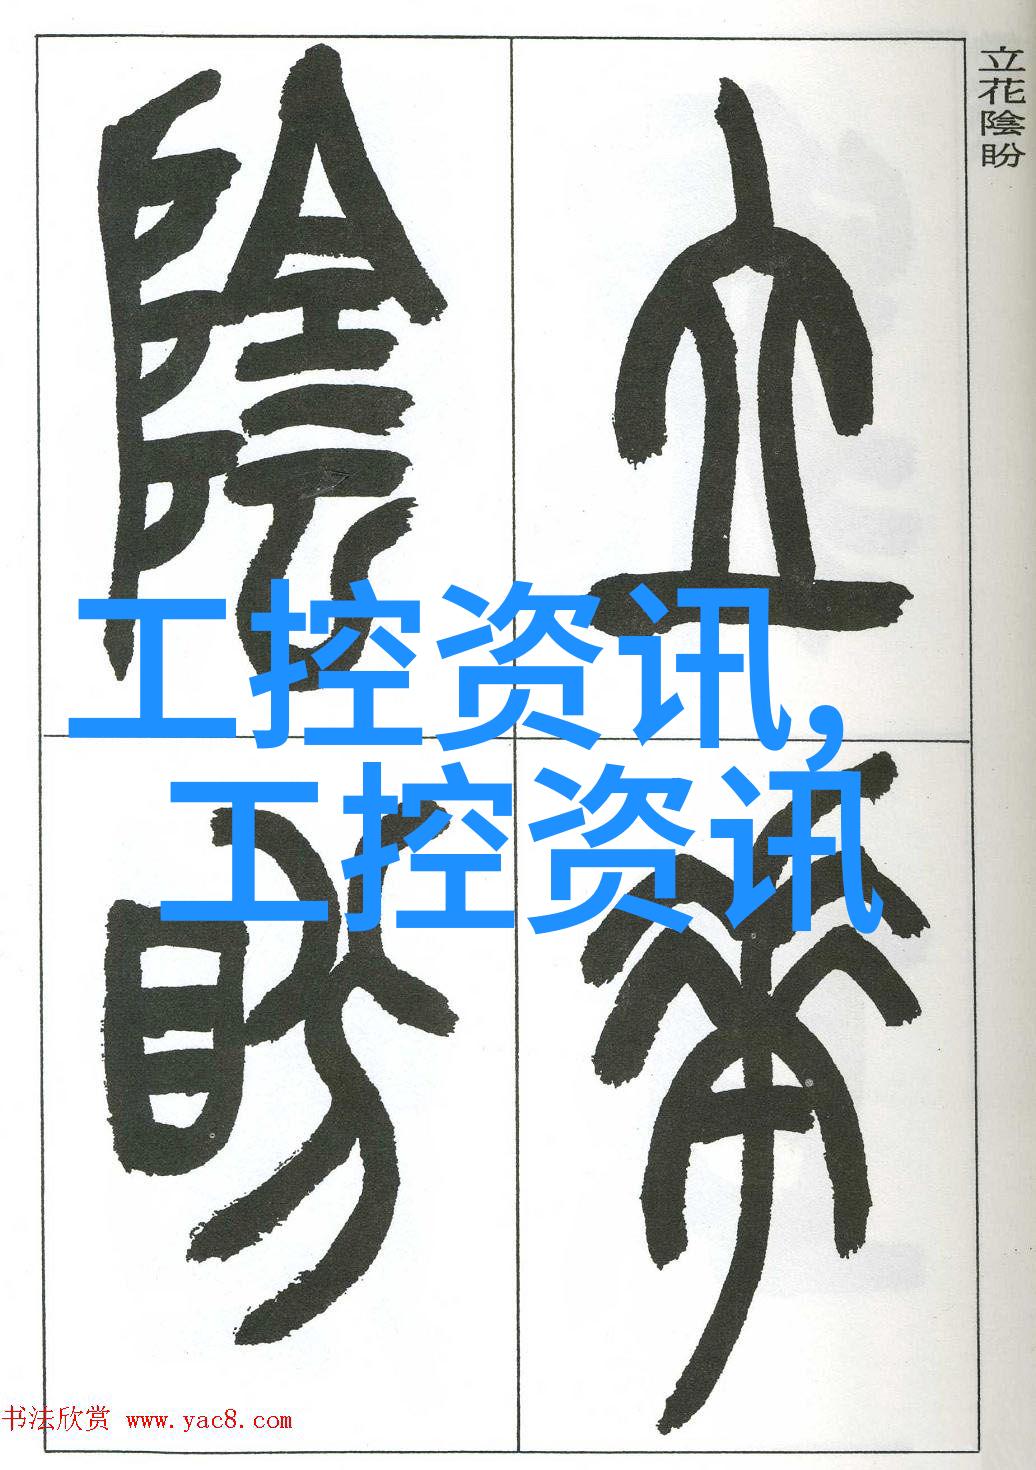 立花陰盼
立
花
陰
盼
工控资讯,
工控资讯
书法欣赏 www.yac8.com